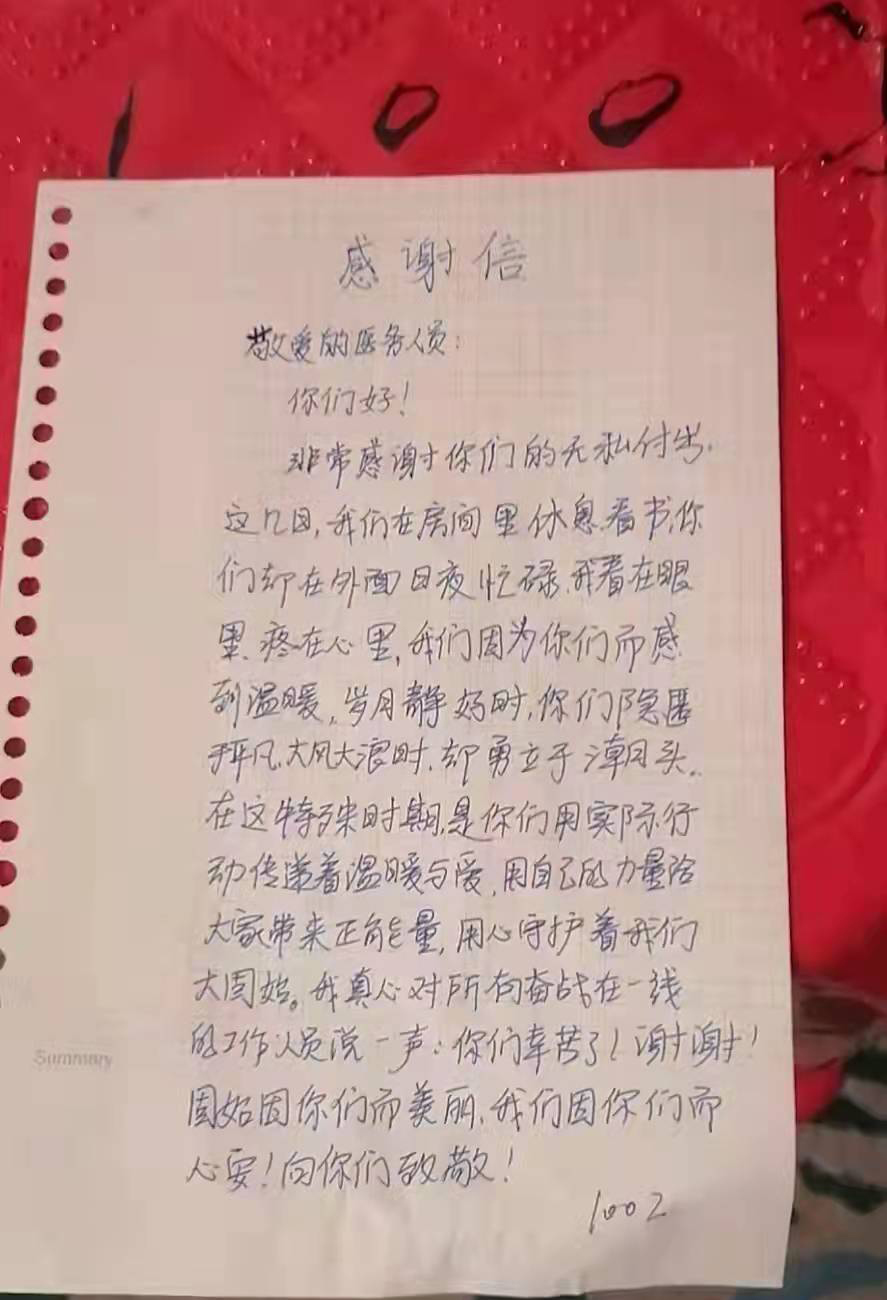 100
感谢信
敬爱的医务人员:
你们好!
非常感谢你们的无私付出.
这几日,我们在房间里休息.看书,你
们却在外面日夜忙碌.我看在眼
里.疼在心里,我们因为你们而感
到温暖,岁月静好时,你们隐匿
平凡.大风大浪时.却勇立于潮头.
在这特殊时期,是你们用实际行
动传递着温暖与爱,用自己的力量给
大家带来正能量,用心守护着我们
大固始。我真心对所有奋战在一线
的工作人员说一声:你们辛苦了!谢谢!
固始因你们而美丽.我们因你们而
心安!向你们致敬!
1002
Summary